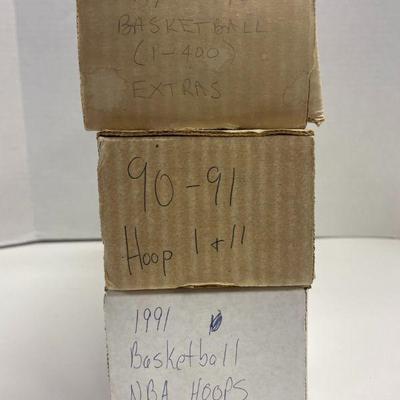 BASKETBALL
(1-400)
EXTRAS
90-91
Hoop 1 + 11
1991
Basketball
NBA HOOPS